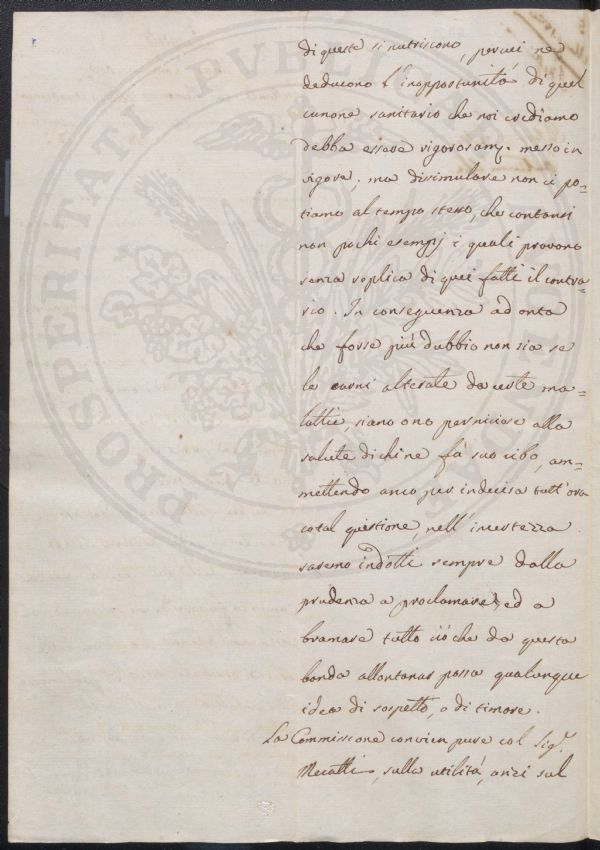 di queste si nutriscono, per cui ne
deducono l'inopportunità di quel
canone sanitario che noi crediamo
debba essere rigorosam. messo in
vigore; ma dissimulare non ci po=
tiamo al tempo stesso, che contansi
non pochi esempj i quali provono
senza replica di quei fatti il contra=
rio. In conseguenza ad onta
che fosse più dubbio non sia se
le carni alterate da certe ma=
lattie, siano o no perniciose alla
salute di chi ne fà suo cibo, am=
mettendo anco per indecisa tutt'ora
cotal questione, nell'incertezza
saremo indotti sempre dalla
prudenza a proclamare ed a
bramare tutto ciò che da questa
banda allontanar possa qualunque
idea di sospetto, o di timore.
La Commissione convien pure col Sigr.
Mecatti, sulla utilità, anzi sul
PROSPERITATI PVBLICAE